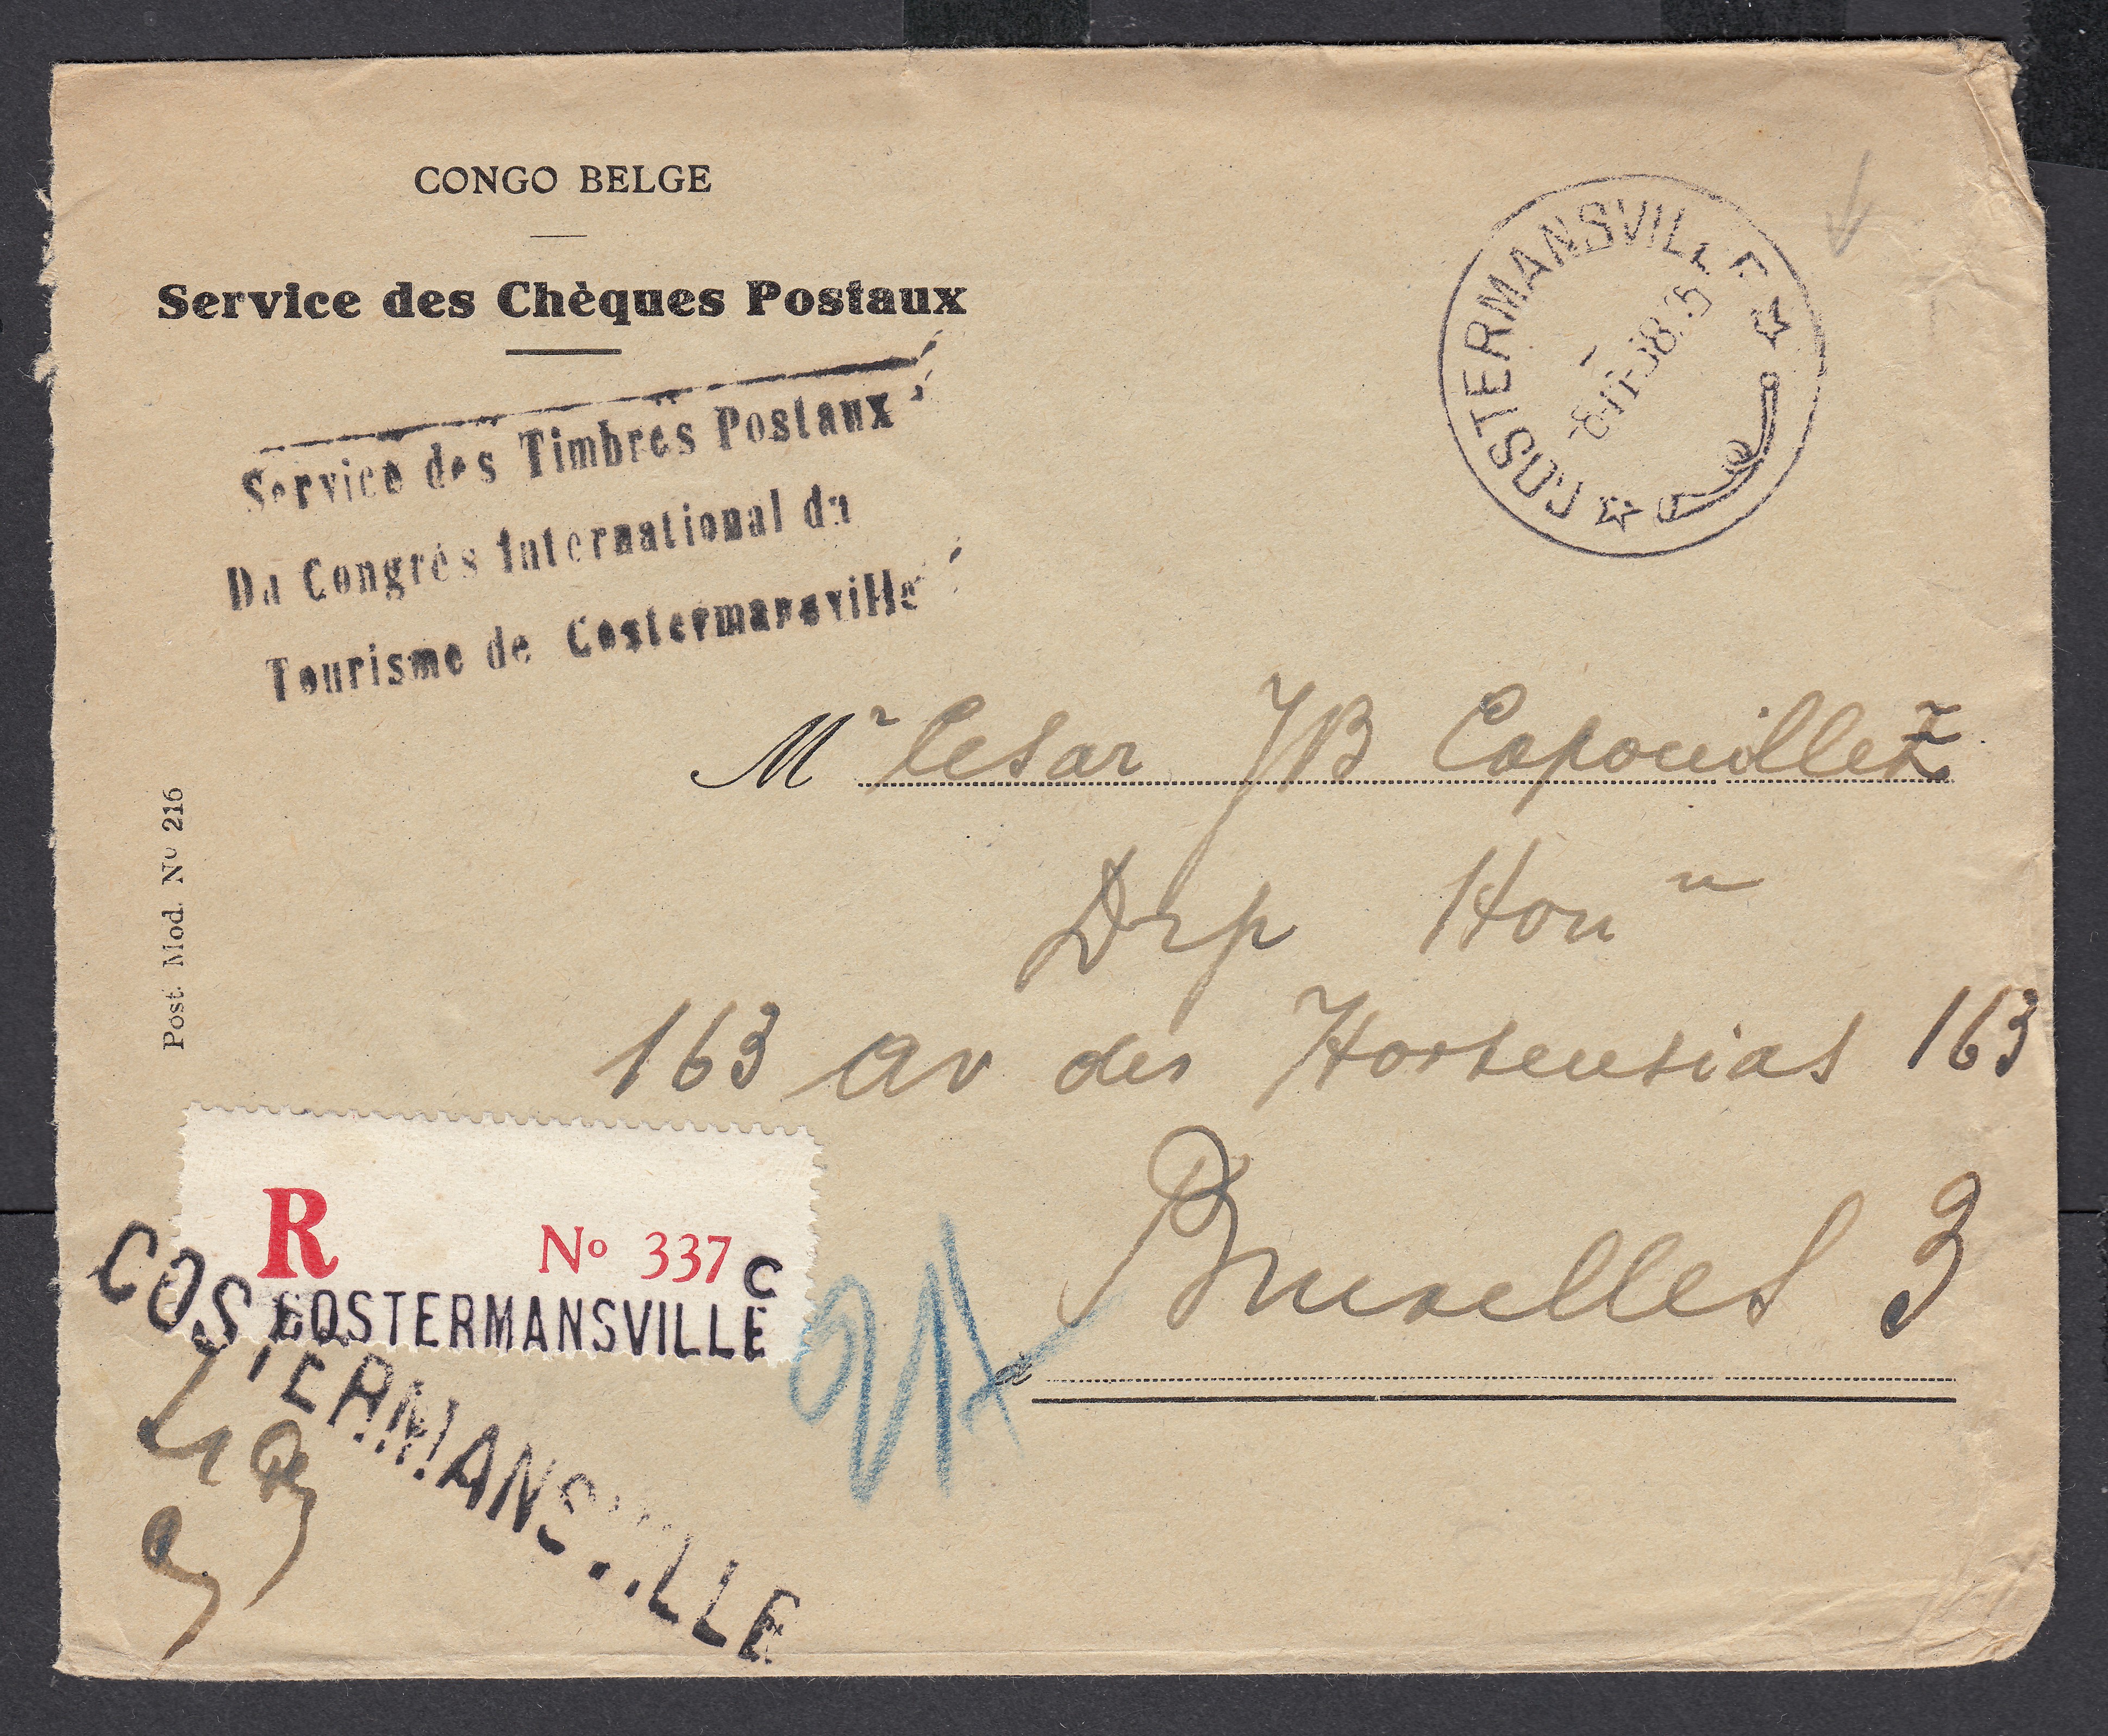 CONGO BELGE
Service des Chèques Postaux
Service des Timbres Postaux
Du Congrès International du
Tourisme de Costermansville
COSTERMANSVILLE
Mr Cesar JB Capouillez
Hon
163 av des Hortensias 163
Bruxelles 3
à
Post. Mod. No 216
R No 337 C
COSTERMANSVILLE
COSTERMANSVILLE